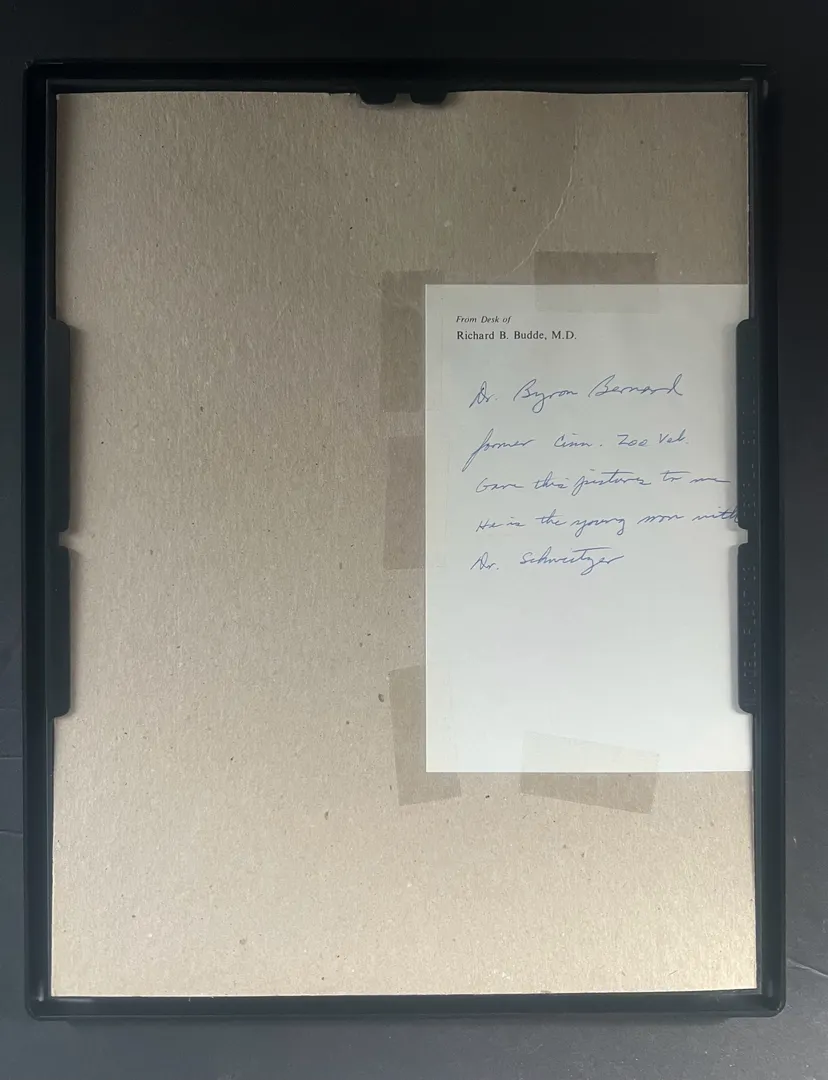 From Desk of
Richard B. Budde, M.D.
Dr. Byron Bernard
former Cinn. Zoo Vet.
Gave this pictures to me
He is the young man with
Dr. Schweitzer